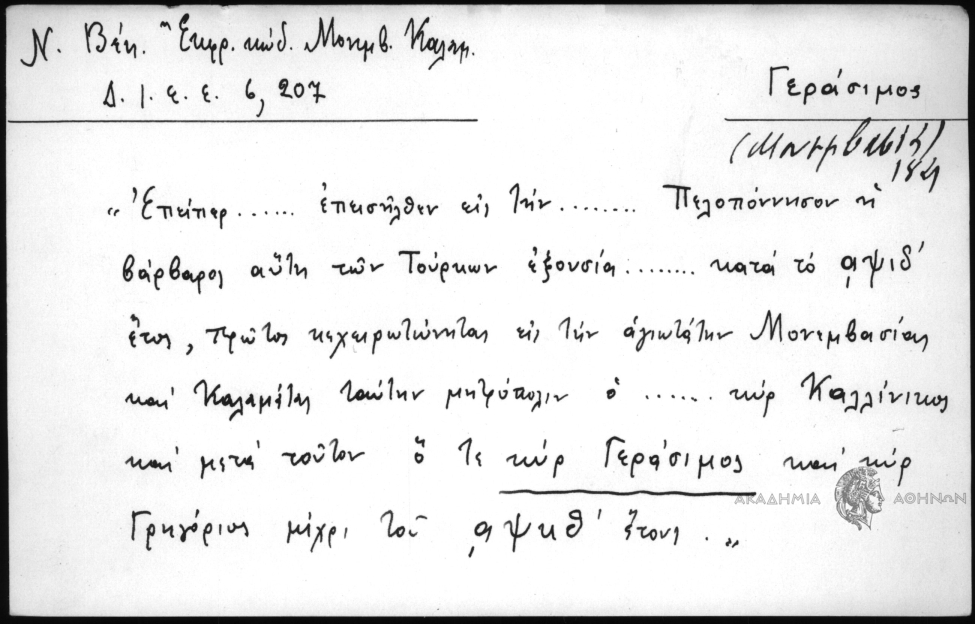 Ν. Βέη. "Έκφρ. κώδ. Μονεμβ. Καλαμ.
Δ. Ι. Ε. Ε. 6, 207
Γεράσιμος
(Μονεμβασία)
„ Ἐπείπερ ...... ἐπεισῆλθεν εἰς τήν ........ Πελοπόννησον ἡ
βάρβαρος αὕτη τῶν Τούρκων ἐξουσία ....... κατά τό ͵αψιδ'
ἔτος, πρῶτος κεχειροτώνηται εἰς τήν ἁγιωτάτην Μονεμβασίας
καί Καλαμάτας ταύτην μητρόπολιν ὁ ...... κύρ Καλλίνικος
καί μετά τοῦτον ὅ τε κύρ Γεράσιμος καί κύρ
Γρηγόριος μέχρι τοῦ ͵αψκθ' ἔτους. „
ΑΚΑΔΗΜΙΑ ΑΘΗΝΩΝ